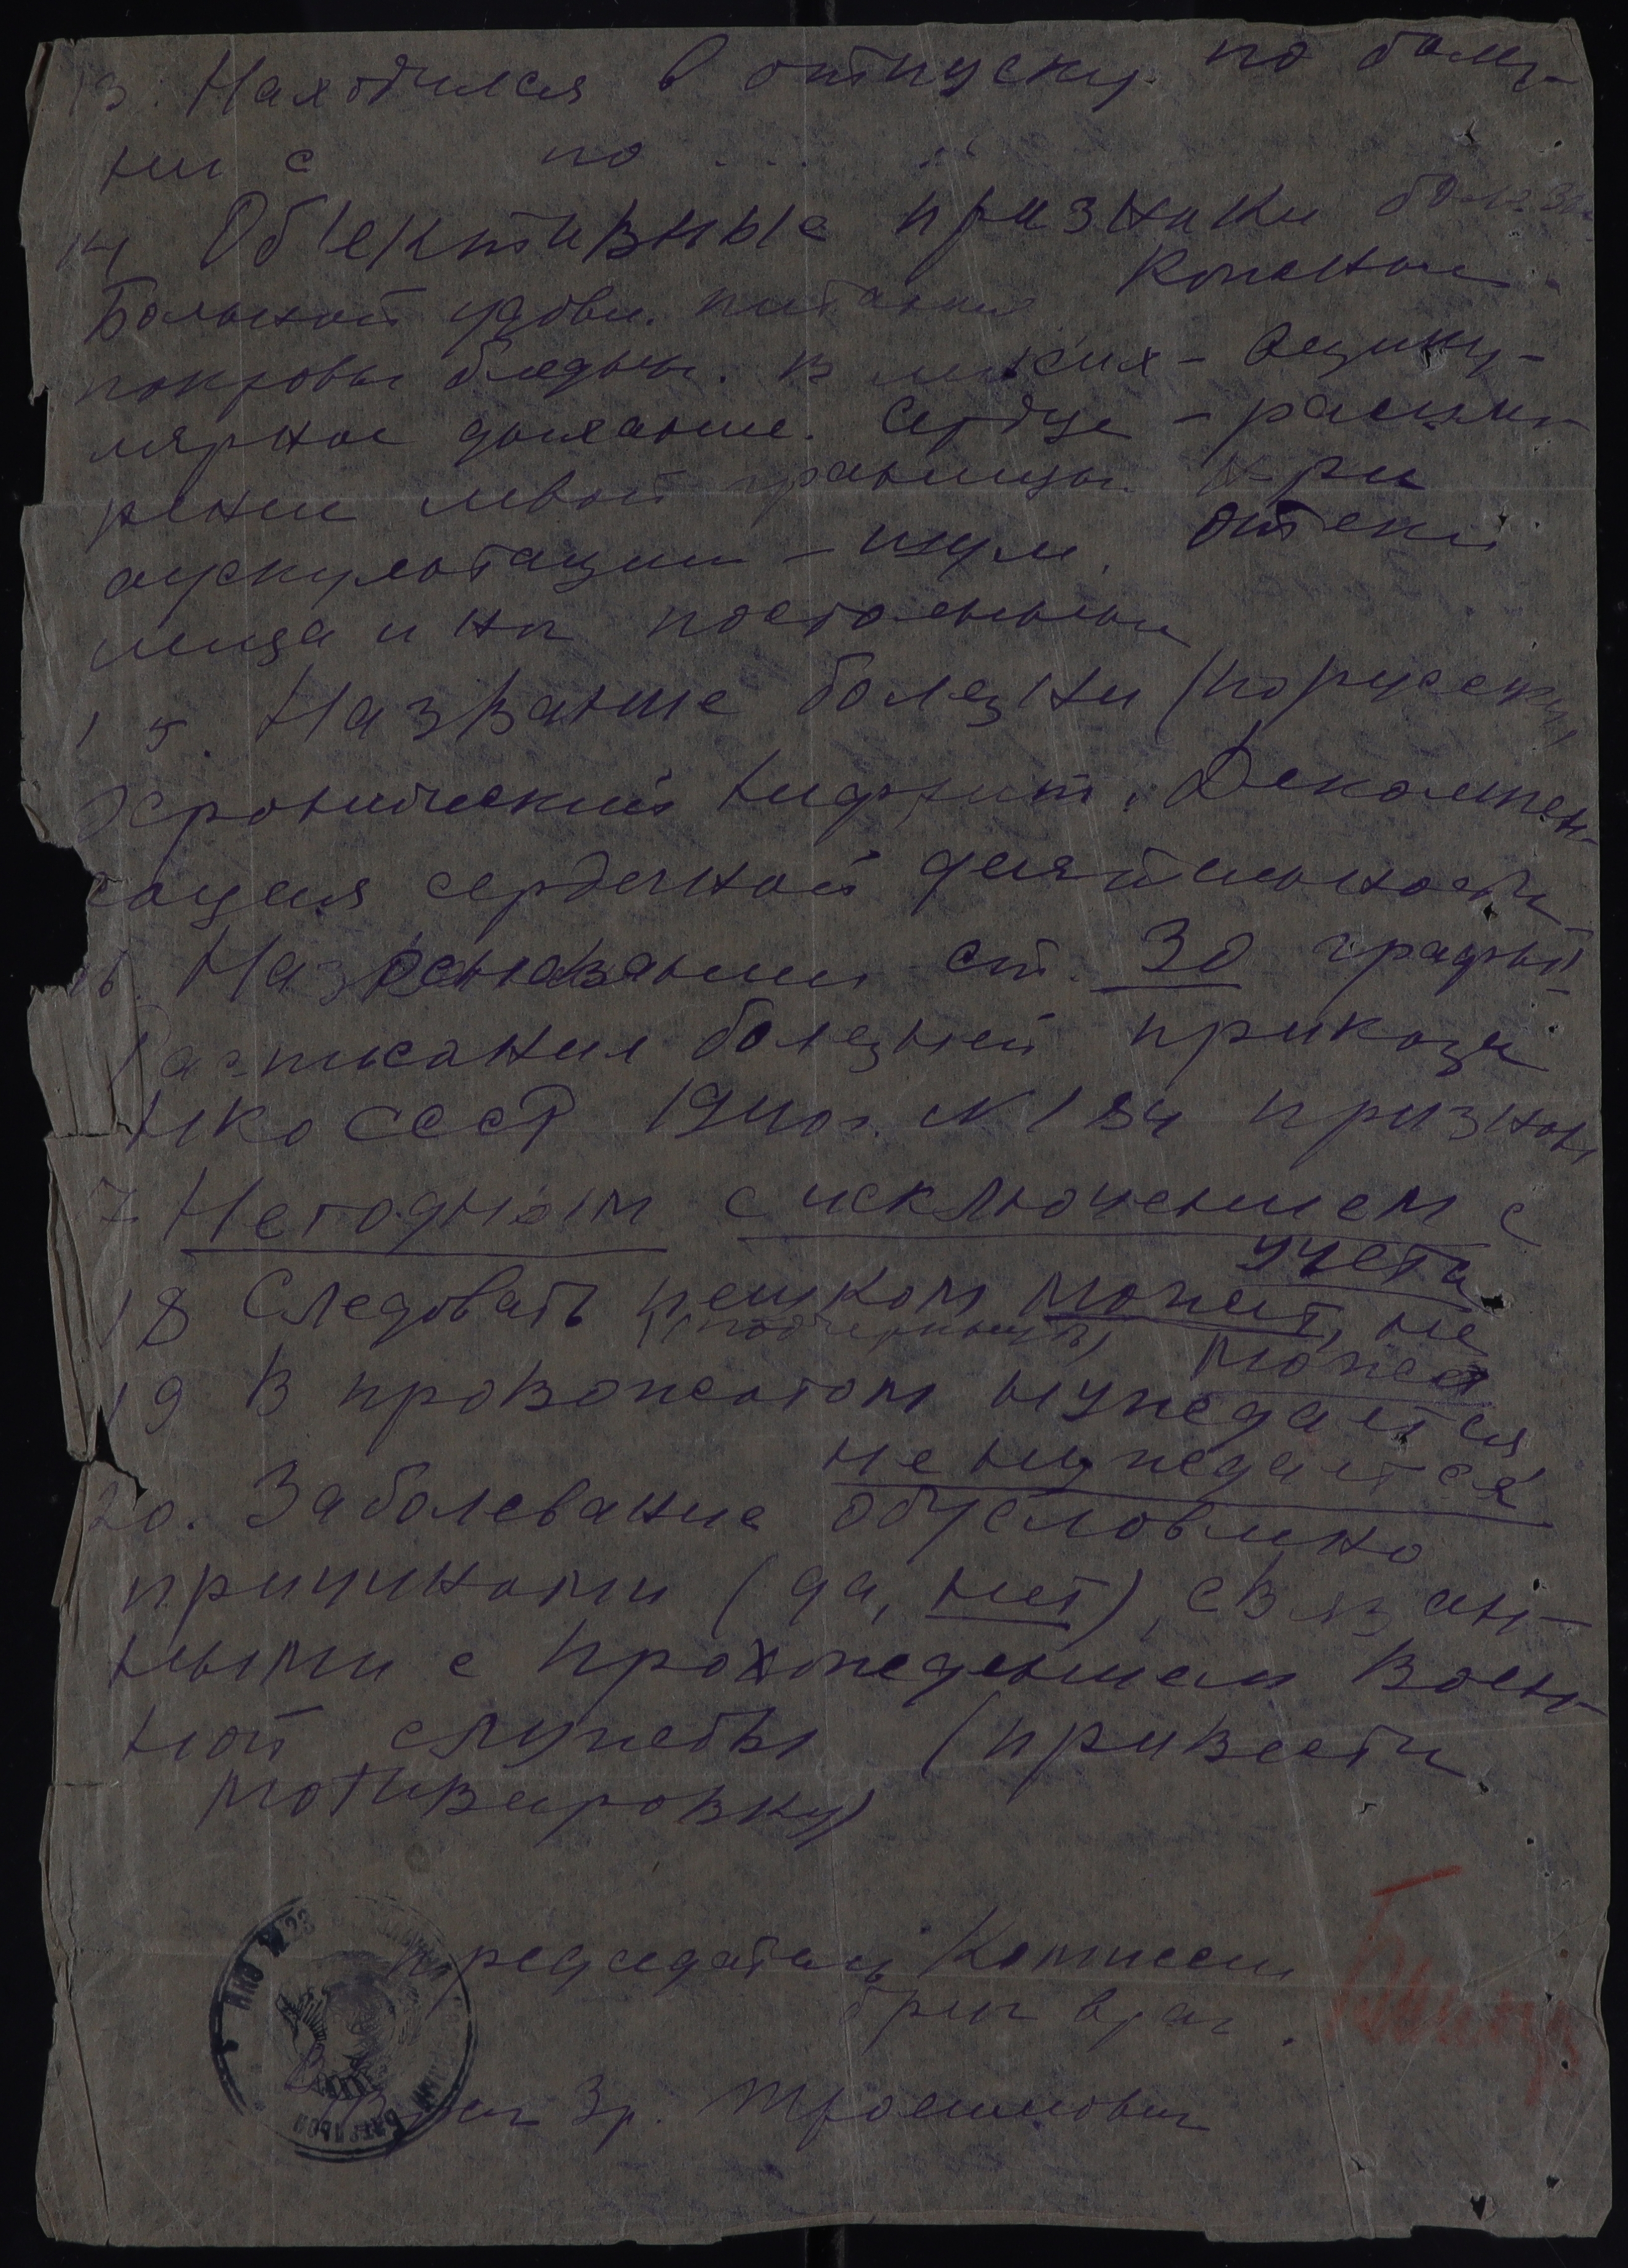 13. Находился в отпуску по болез-
ни с по ...
14 Объективные признаки болезни
Больной удовл. питания Кожные
покровы бледны. В легких - везику-
лярное дыхание. Сердце - расши-
рение левой границы. При
аускультации - шум. Отеки
лица и н/к постоянный
15. Название болезни (по русски)
Хронический нефрит. Декомпен-
сация сердечной деятельности
16. На основании ст. 30 графы
Расписания болезней приказа
НКО СССР 1940г. N 184 признан
17 Негодным с исключением с
учета
18 Следовать пешком может, не
(подчеркнуть) может
19 В провожатом нуждается
не нуждается
20. Заболевание обусловлено
причинами (да, нет), связан-
ными с прохождением воен-
ной службы (привести
мотивировку)
Председатель Комиссии
бриг врач
НКО N 23